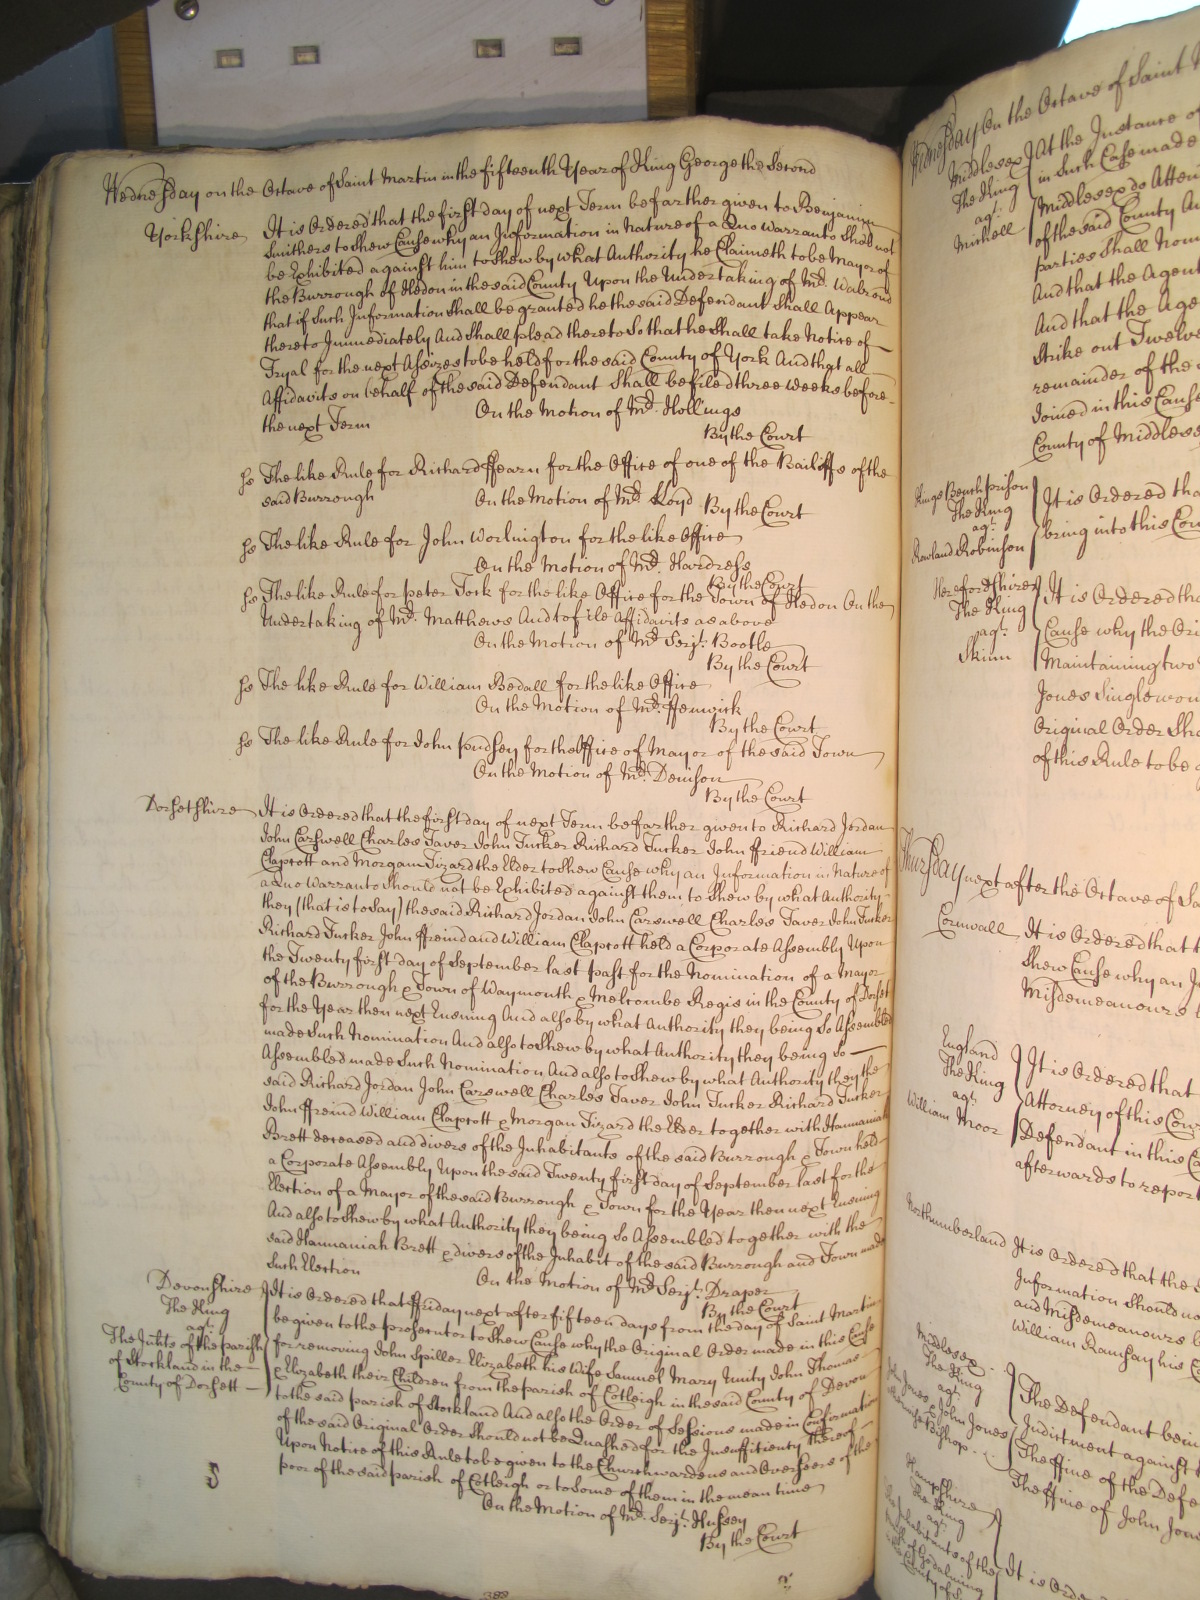 Wednesday on the Octave of Saint Martin in the fifteenth Year of King George the Second
Yorkshire It is Ordered that the first day of next Term be farther given to Benjamin
Smithers to Shew Cause why an Information in Nature of a Quo Warranto Shod not
be Exhibited against him to Shew by what Authority he Claimeth to be Mayor of
the Burrough of Hedon in the said County Upon the Undertaking of Mr. Walrond
that if Such Information Shall be granted he the said Defendant Shall Appear
thereto Immediately And Shall plead thereto So that he Shall take Notice of
Tryal for the next Assizes to be held for the said County of York And that all
Affidavits on behalf of the said Defendant Shall be filed three Weeks before
the next Term On the Motion of Mr. Hollings
By the Court
ss The like Rule for Richard ffearn for the Office of one of the Bailiffs of the
said Burrough On the Motion of Mr. Lloyd By the Court
ss The like Rule for John Worlington for the like Office
On the Motion of Mr. Hardress
By the Court
ss The like Rule for Peter Tock for the like Office for the Town of Hedon On the
Undertaking of Mr. Matthews And to file Affidavits as above
On the Motion of Mr. Serjt. Bootle
By the Court
ss The like Rule for William Bedall for the like Office
On the Motion of Mr. ffenwick
By the Court
ss The like Rule for John Pudsey for the Office of Mayor of the said Town
On the Motion of Mr. Denison
By the Court
Dorsetshire It is Ordered that the first day of next Term be farther given to Richard Jordan
John Carswell Charles Taver John Tucker Richard Tucker John ffriend William
Claprott and Morgan Tizard the Elder to Shew Cause why an Information in Nature of
a Quo Warranto Should not be Exhibited against them to Shew by what Authority
they (that is to Say) the said Richard Jordan John Carswell Charles Taver John Tucker
Richard Tucker John ffreind and William Claprott held a Corporate Assembly Upon
the Twenty first day of September last past for the Nomination of a Mayor
of the Burrough & Town of Waymouth & Melcombe Regis in the County of Dorset
for the Year then next Ensuing And also by what Authority they being So Assembled
made Such Nomination And also to Shew by what Authority they being So
Assembled made Such Nomination And also to Shew by what Authority they the
said Richard Jordan John Carswell Charles Taver John Tucker Richard Tucker
John ffreind William Claprott & Morgan Tizard the Elder together with Hannaniah
Brett deceased and divers of the Inhabitants of the said Burrough & Town held
a Corporate Assembly Upon the said Twenty first day of September last for the
Election of a Mayor of the said Burrough & Town for the Year then next Ensuing
And also to Shew by what Authority they being So Assembled together with the
said Hannaniah Brett & divers of the Inhabit of the said Burrough and Town made
Such Election On the Motion of Mr. Serjt. Draper
By the Court
Devonshire It is Ordered that ffriday next after fifteen days from the day of Saint Martin
The King be given to the prosecutor to Shew Cause why the Original Order made in this Cause
agt.
The Inhts of the parish for removing John Spiller Elizabeth his Wife Samuel Mary Unity John Thomas
of Stockland in the & Elizabeth their Children from the parish of Cotleigh in the said County of Devon
County of Dorsett to the said parish of Stockland And also the Order of Sessions made in Confirmation
of the said Original Order Should not be Quashed for the Insufficienty thereof
Upon Notice of this Rule to be given to the Churchwardens and Overseers of the
poor of the said parish of Cotleigh or to Some of them in the mean time
On the Motion of Mr. Serjt. Hussey
By the Court
Wednesday On the Octave of Saint
Middlesex At the Instance of
The King in Such Case made
agt. Middlesex do Atten
Mitchell of the said County An
parties Shall Nom
And that the Agent
And that the Age
Strike out Twelve
remainder of the
Joined in this Cause
County of Middlesex
Kings Bench prison It is Ordered tha
The King
agt. being into this Cou
Rowland Robinson
Herefordshire It is Ordered tha
The King
agt. Cause why the Ori
Skinn Maintaining two
Jones Singlewom
Original Order Sho
of this Rule to be
Thursday next after the Octave of Sa
Cornwall It is Ordered that t
Shew Cause why an In
Misdemeanours
England It is Ordered that
The King
agt. Attorney of this Cour
William Moor Defendant in this Ca
afterwards to report
Northumberland It is Ordered that the
Information Should no
and Misdemeanours
William Ramsay his
Middlesex
The King The Defendant bein
agt. Indictment against
John Jones & John Jones The ffine of the Defe
Bishop The ffine of John Jon
Hampshire
The King
agt.
The Inhabitants of the It is Orde
parish of Godalming
in the County of